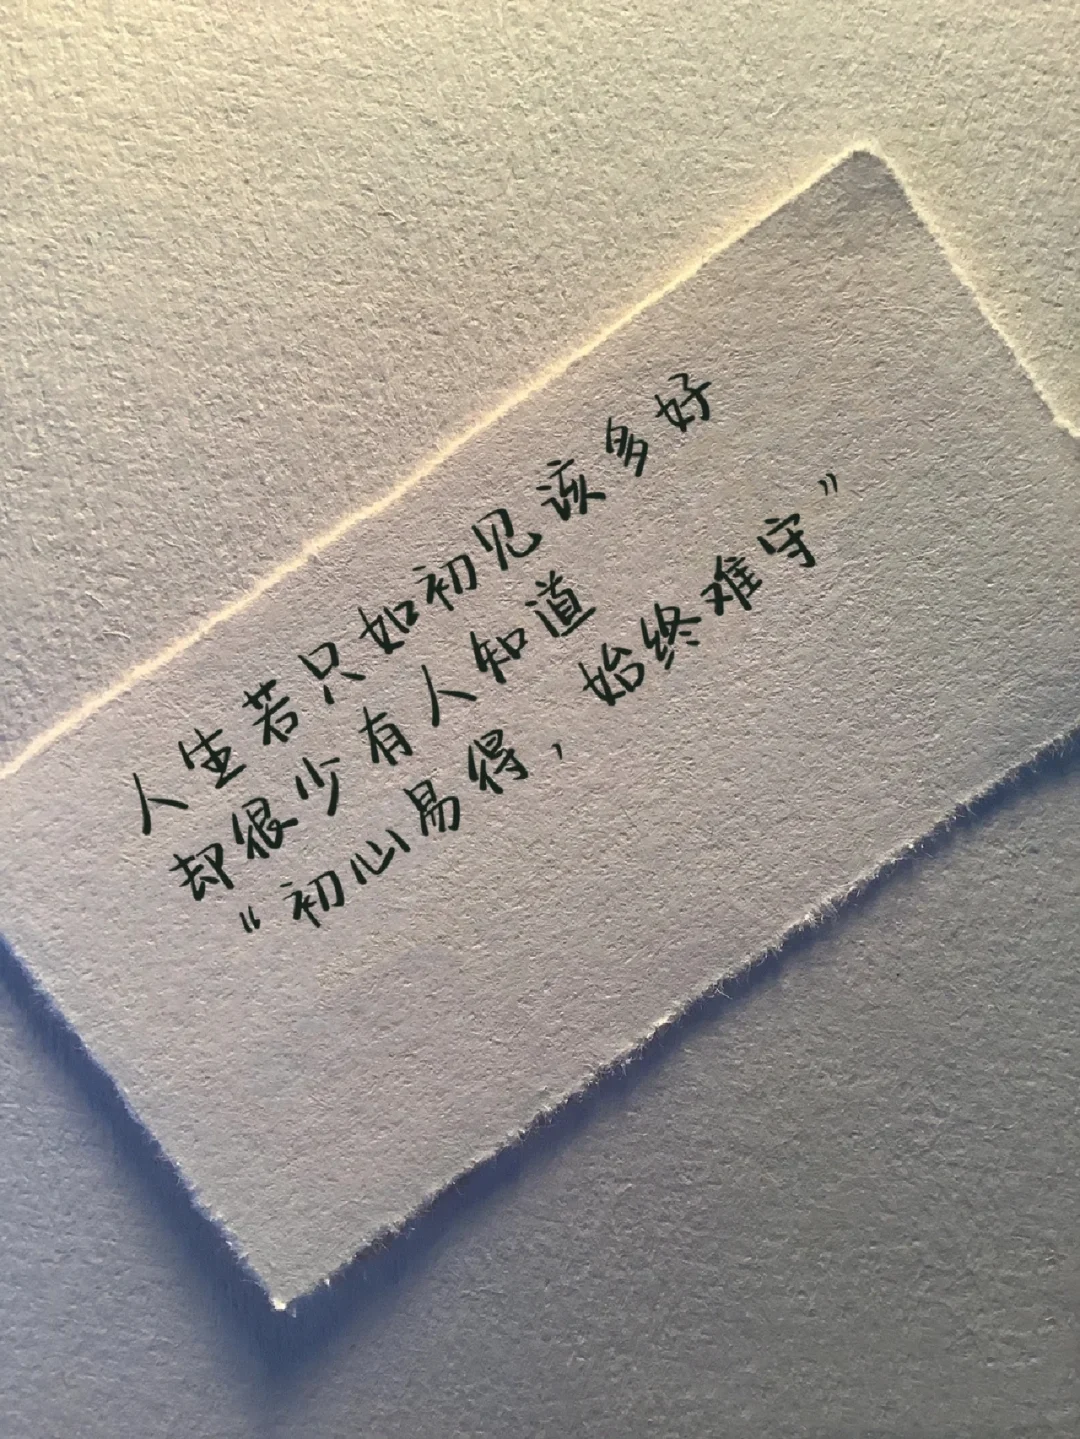 人生若只如初见该多好
却很少有人知道
“初心易得，始终难守”